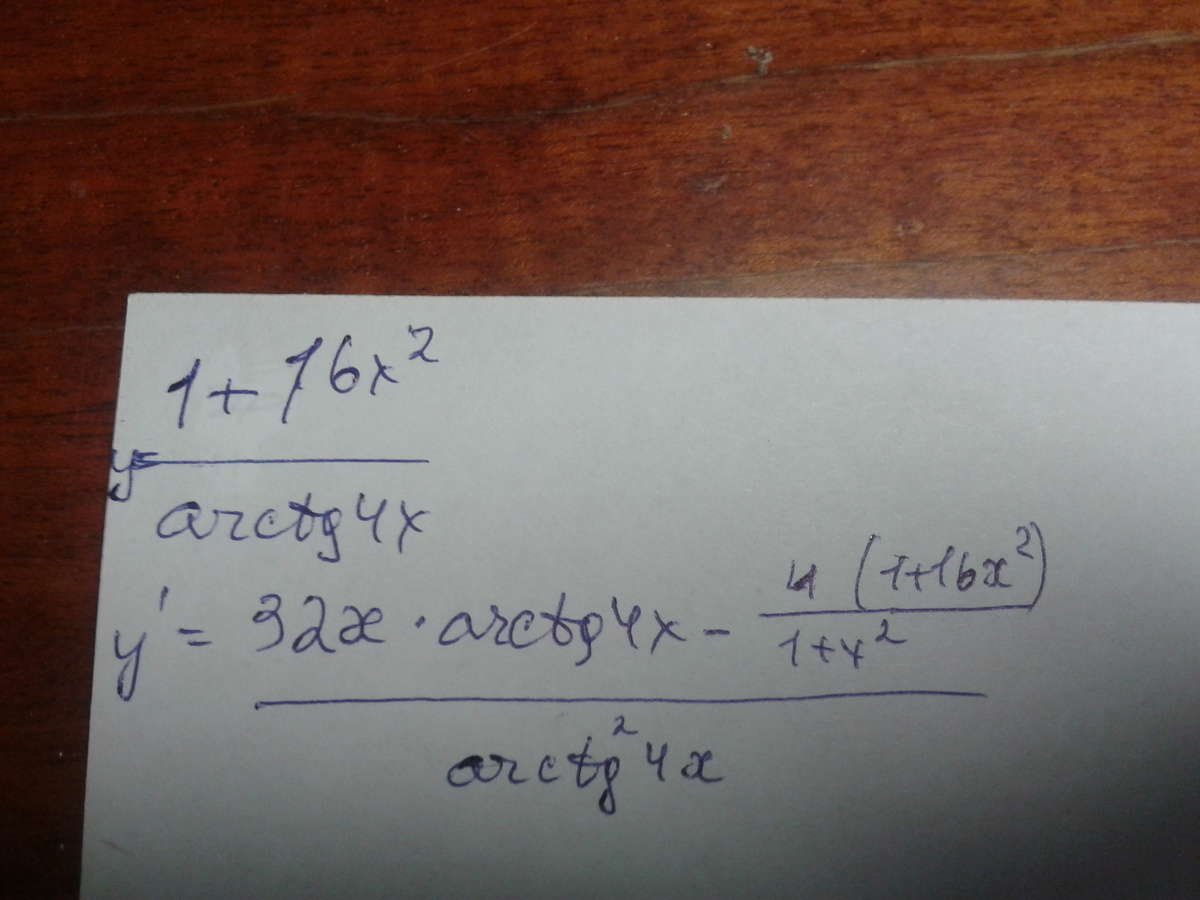 y = (1 + 16x²) / (arctg 4x)
y' = (32x · arctg 4x - (4 (1+16x²)) / (1+x²)) / (arctg² 4x)